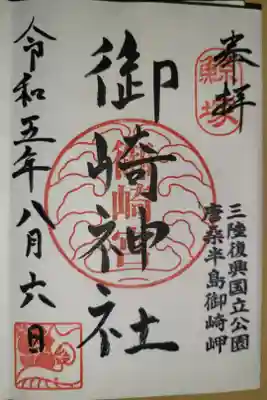 奉拝
三陸復興国立公園
唐桑半島御崎岬
御崎神社
御崎宮
令和五年八月六日